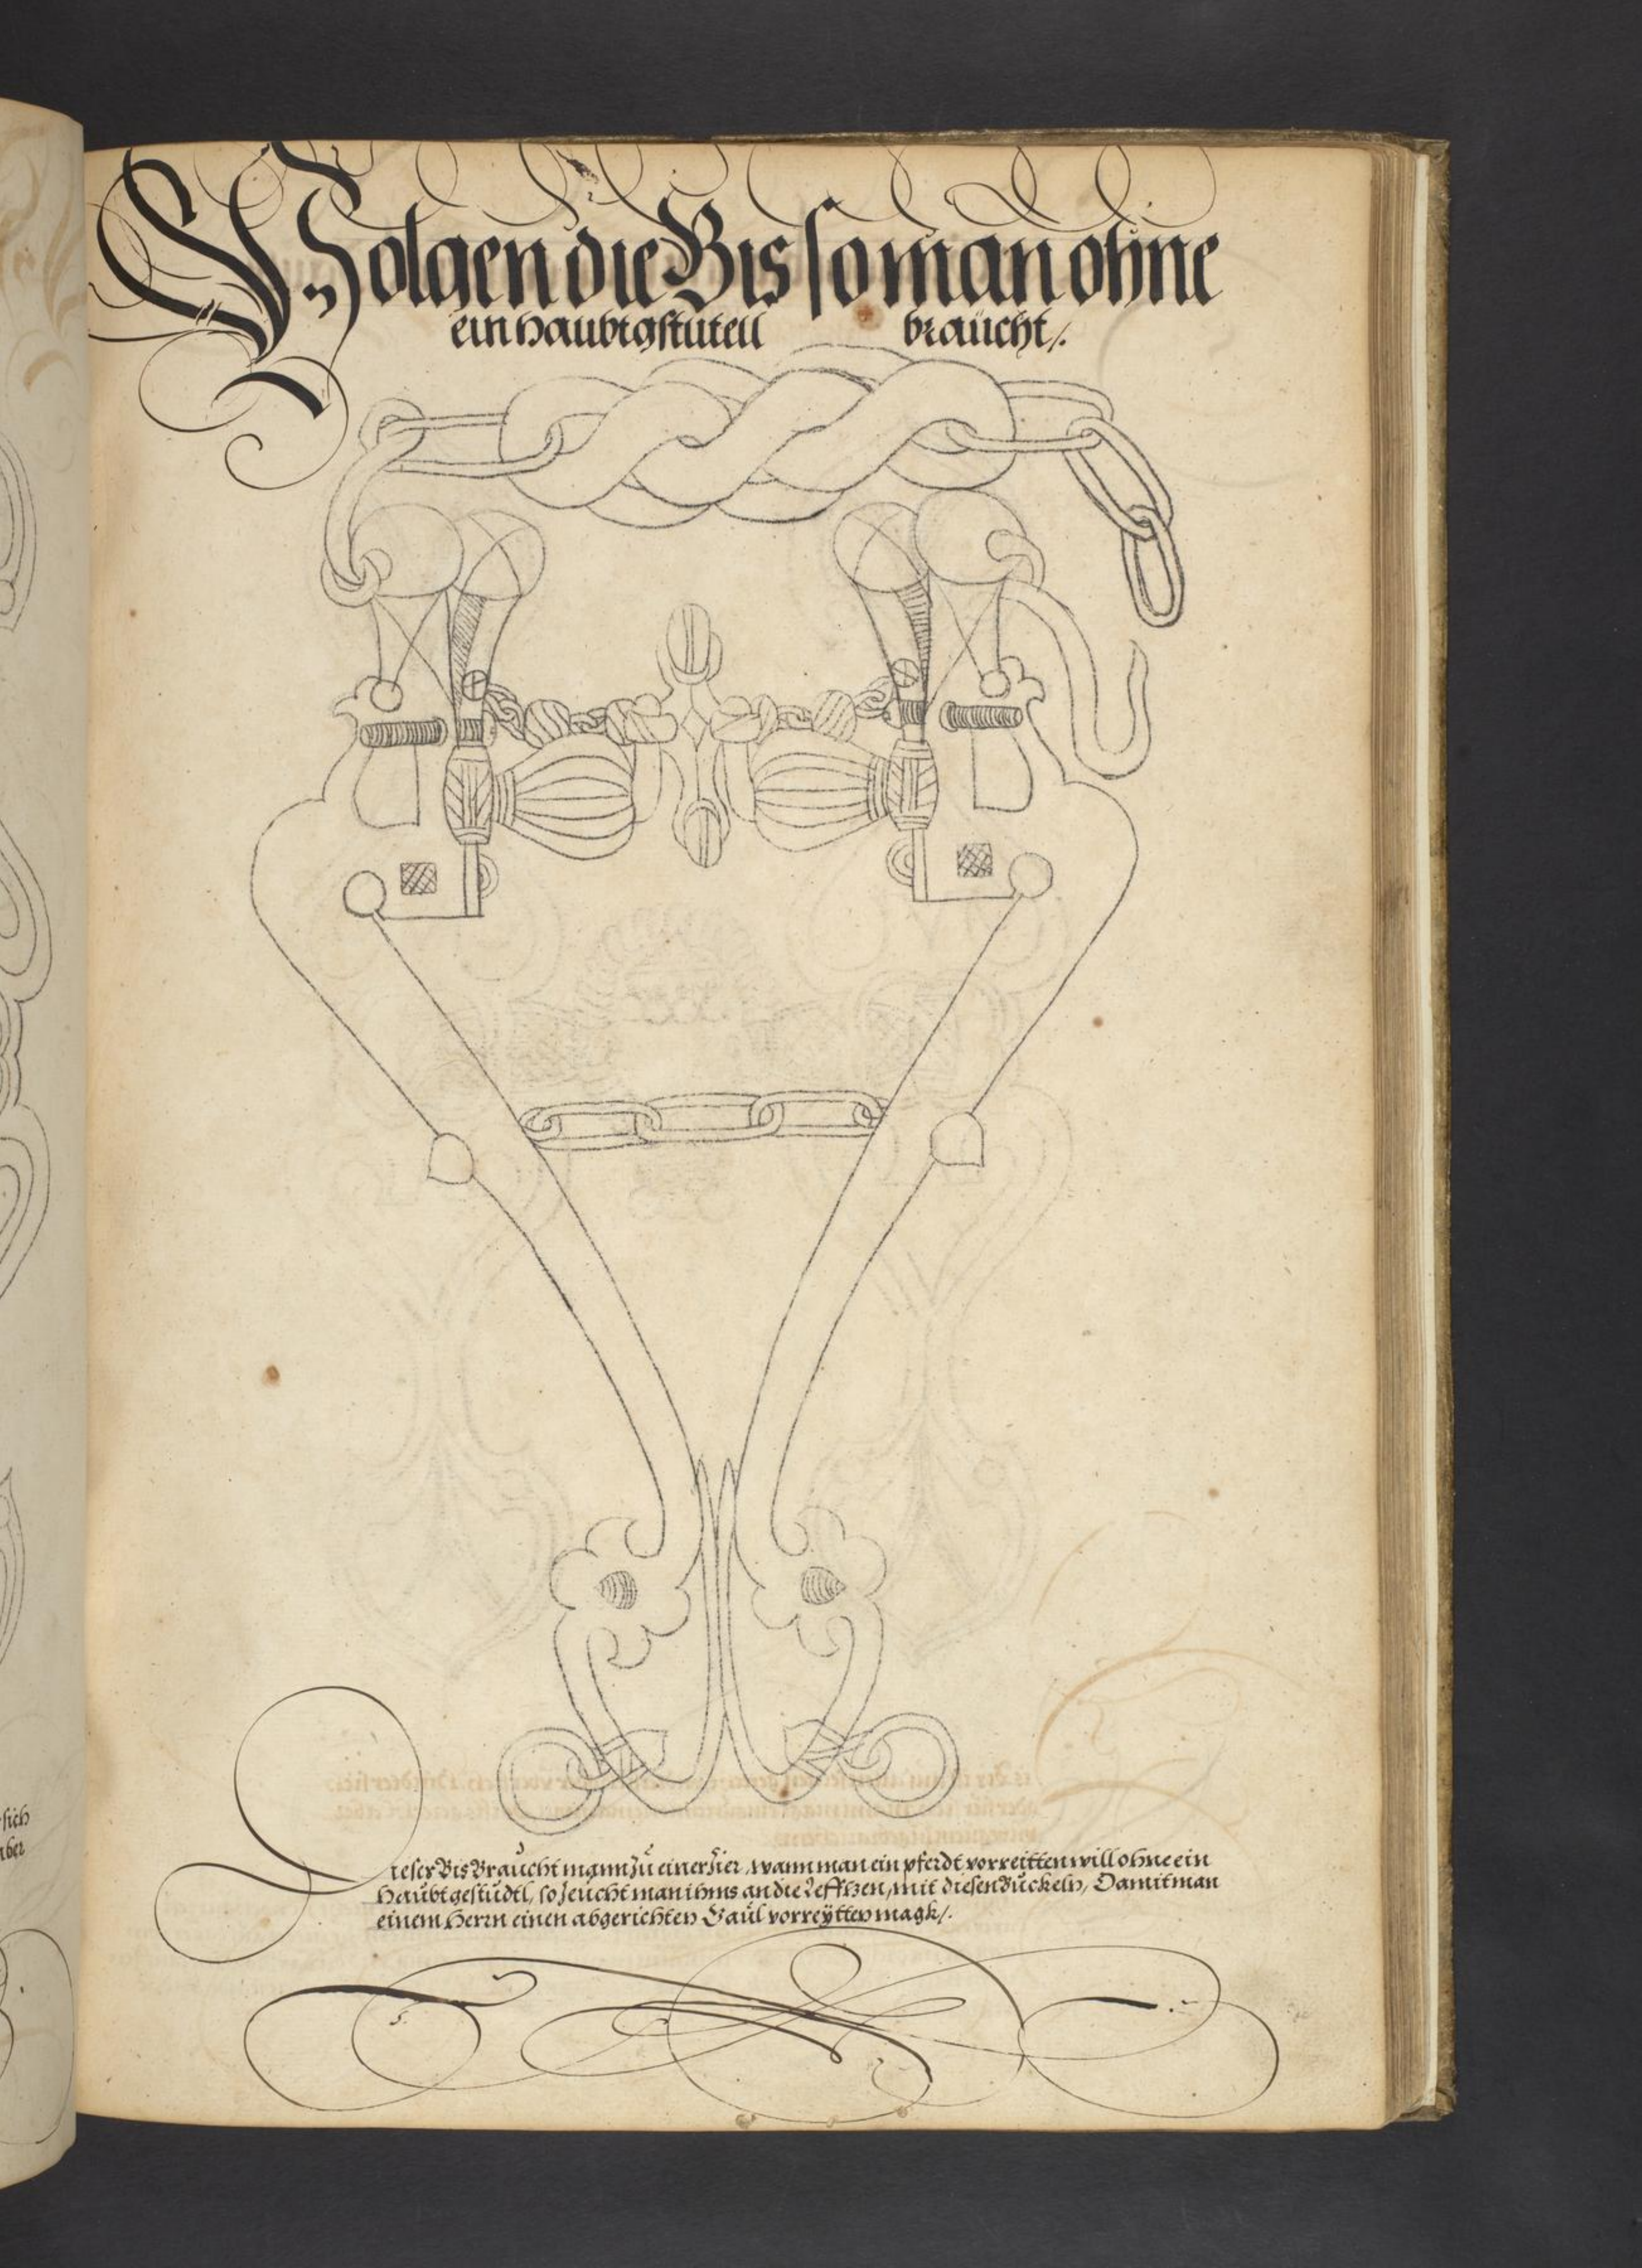 Volgen die Bis so man ohne
ein haubtgstutell braucht /.
sich
aber
Dieser Bis Braucht mann zu einer Zier, wann man ein pferdt vorreitten will ohne ein
Haubtgestudtl, so zeucht man ihms an die Leffzen, mit diesen Buckeln, Damit man
einem Herrn einen abgerichten Gaul vorreytten magk /.